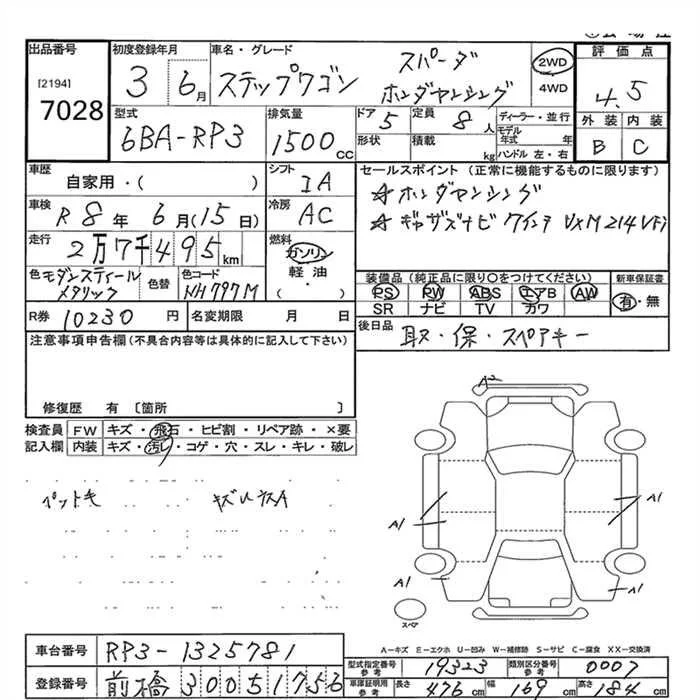 出品番号
[2194]
7028
初度登録年月
3 6月
車名・グレード
ステップワゴン スパーダ
ホンダセンシング
2WD
4WD
評価点
4.5
外装 内装
B C
型式
6BA-RP3
排気量
1500cc
ドア 5
形状
定員 8人
積載 kg
ディーラー・並行
モデル年式 年
ハンドル 左・右
車歴
自家用・( )
シフト
IA
車検
R 8年 6月(15日)
冷房
AC
走行
2万7千495km
燃料
ガソリン
軽油
( )
色 モダンスティールメタリック
色替
色コード
NH797M
セールスポイント (正常に機能するものに限ります)
☆ホンダセンシング
☆ギャザズナビ 9インチ VXM214VFi
装備品(純正品に限り○をつけてください)
PS PW ABS エアB AW
SR ナビ TV カワ
新車保証書
有・無
R券 10230円
名変期限 月 日
後日品 取・保・スペアキー
注意事項申告欄(不具合内容等は具体的に記入して下さい)
修復歴 有 〔箇所 〕
検査員記入欄
FW キズ・飛石・ヒビ割・リペア跡・×要
内装 キズ・汚レ・コゲ・穴・スレ・キレ・破レ
ペット毛
A2
A1
A1
A1
A1
スペア
A-キズ E-エクボ U-凹み W-補修跡 S-サビ C-腐食 XX-交換済
車台番号 RP3-1325781
登録番号 前橋 300 5 1756
型式指定番号 参考 19323
類別区分番号 参考 0007
車庫証明用 参考 長さ 476cm 幅 169cm 高さ 184cm